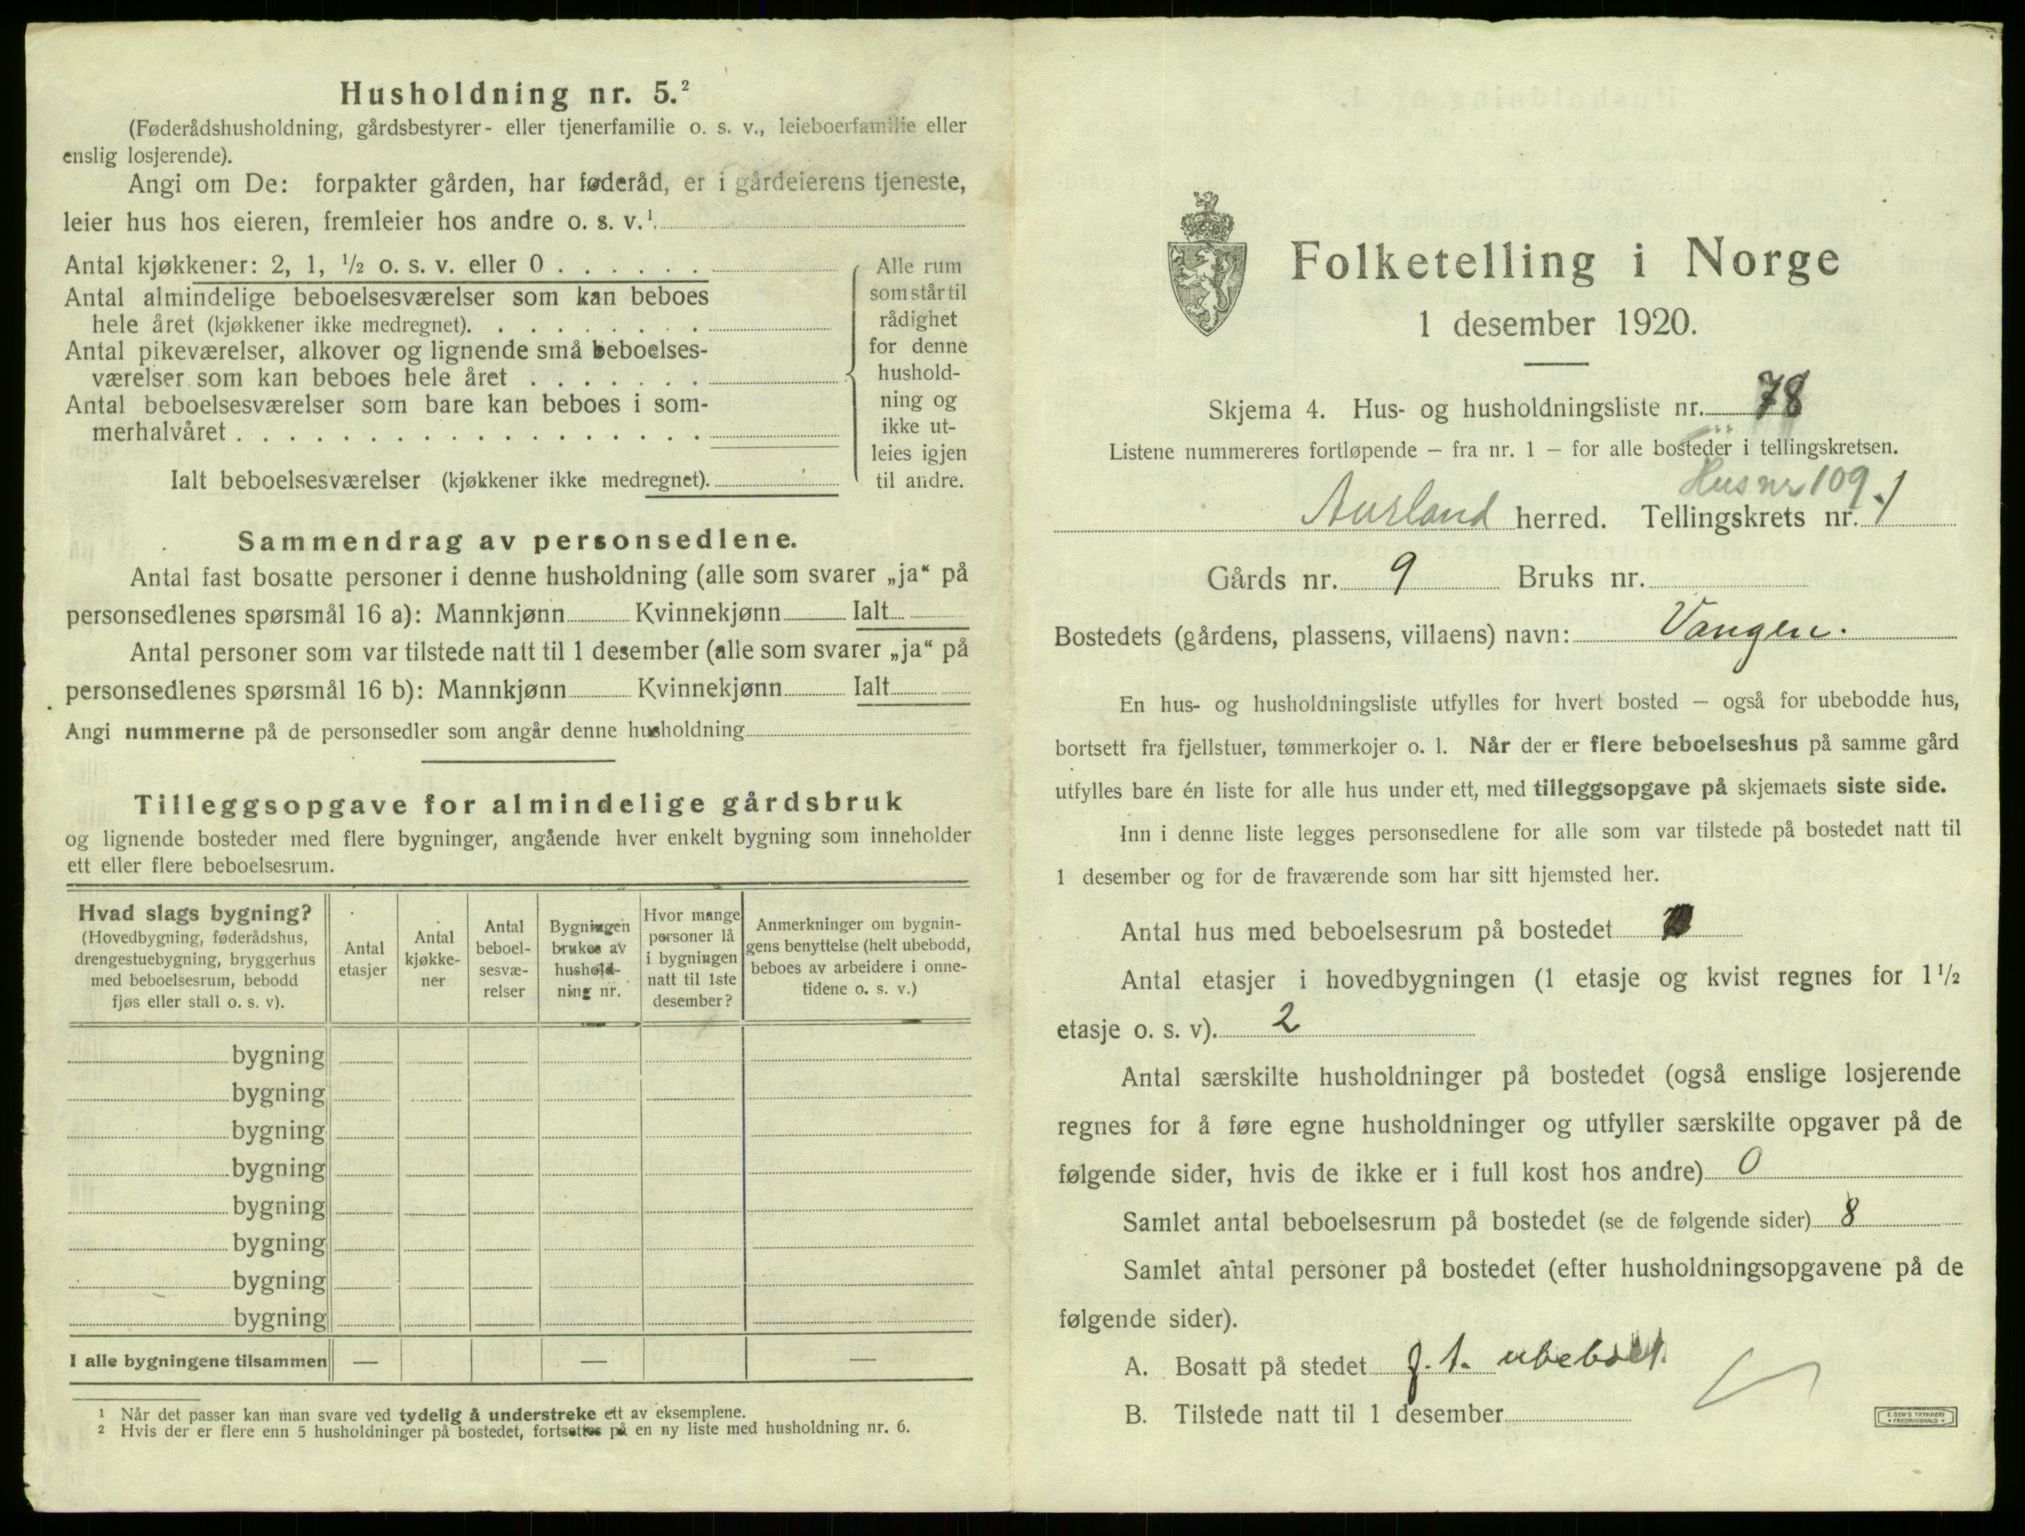 Husholdning nr. 5.²
(Føderådshusholdning, gårdsbestyrer- eller tjenerfamilie o. s. v., leieboerfamilie eller
enslig losjerende).
Angi om De: forpakter gården, har føderåd, er i gårdeierens tjeneste,
leier hus hos eieren, fremleier hos andre o. s. v.¹
Antal kjøkkener: 2, 1, ½ o. s. v. eller 0 . . . . . .
Antal almindelige beboelsesværelser som kan beboes
hele året (kjøkkener ikke medregnet). . . . . . . . .
Antal pikeværelser, alkover og lignende små beboelses-
værelser som kan beboes hele året . . . . . . .
Antal beboelsesværelser som bare kan beboes i som-
merhalvåret . . . . . . . . . . . . . . . . . .
Ialt beboelsesværelser (kjøkkener ikke medregnet).
Alle rum
som står til
rådighet
for denne
hushold-
ning og
ikke ut-
leies igjen
til andre.
Sammendrag av personsedlene.
Antal fast bosatte personer i denne husholdning (alle som svarer „ja“ på
personsedlenes spørsmål 16 a): Mannkjønn Kvinnekjønn Ialt
Antal personer som var tilstede natt til 1 desember (alle som svarer „ja“ på
personsedlenes spørsmål 16 b): Mannkjønn Kvinnekjønn Ialt
Angi nummerne på de personsedler som angår denne husholdning
Tilleggsopgave for almindelige gårdsbruk
og lignende bosteder med flere bygninger, angående hver enkelt bygning som inneholder
ett eller flere beboelsesrum.
Hvad slags bygning?
(Hovedbygning, føderådshus,
drengestuebygning, bryggerhus
med beboelsesrum, bebodd
fjøs eller stall o. s. v).
Antal
etasjer
Antal
kjøkke-
ner
Antal
beboel-
sesvæ-
relser
Bygningen
brukes av
hushold-
ning nr.
Hvor mange
personer lå
i bygningen
natt til 1ste
desember?
Anmerkninger om bygnin-
gens benyttelse (helt ubebodd,
beboes av arbeidere i onne-
tidene o. s. v.)
bygning
bygning
bygning
bygning
bygning
bygning
bygning
bygning
I alle bygningene tilsammen — — —
¹ Når det passer kan man svare ved tydelig å understreke ett av eksemplene.
² Hvis der er flere enn 5 husholdninger på bostedet, fortsettes på en ny liste med husholdning nr. 6.
Folketelling i Norge
1 desember 1920.
Skjema 4. Hus- og husholdningsliste nr. 78
Listene nummereres fortløpende – fra nr. 1 – for alle bosteder i tellingskretsen.
Hus nr 109
Aurland herred. Tellingskrets nr. 1
Gårds nr. 9 Bruks nr.
Bostedets (gårdens, plassens, villaens) navn: Vangen.
En hus- og husholdningsliste utfylles for hvert bosted – også for ubebodde hus,
bortsett fra fjellstuer, tømmerkojer o. l. Når der er flere beboelseshus på samme gård
utfylles bare én liste for alle hus under ett, med tilleggsopgave på skjemaets siste side.
Inn i denne liste legges personsedlene for alle som var tilstede på bostedet natt til
1 desember og for de fraværende som har sitt hjemsted her.
Antal hus med beboelsesrum på bostedet
Antal etasjer i hovedbygningen (1 etasje og kvist regnes for 1½
etasje o. s. v). 2
Antal særskilte husholdninger på bostedet (også enslige losjerende
regnes for å føre egne husholdninger og utfyller særskilte opgaver på de
følgende sider, hvis de ikke er i full kost hos andre) 0
Samlet antal beboelsesrum på bostedet (se de følgende sider) 8
Samlet antal personer på bostedet (efter husholdningsopgavene på de
følgende sider).
A. Bosatt på stedet f. t. ubeboet.
B. Tilstede natt til 1 desember
E. SEM'S TRYKKERI
FREDRIKSHALD